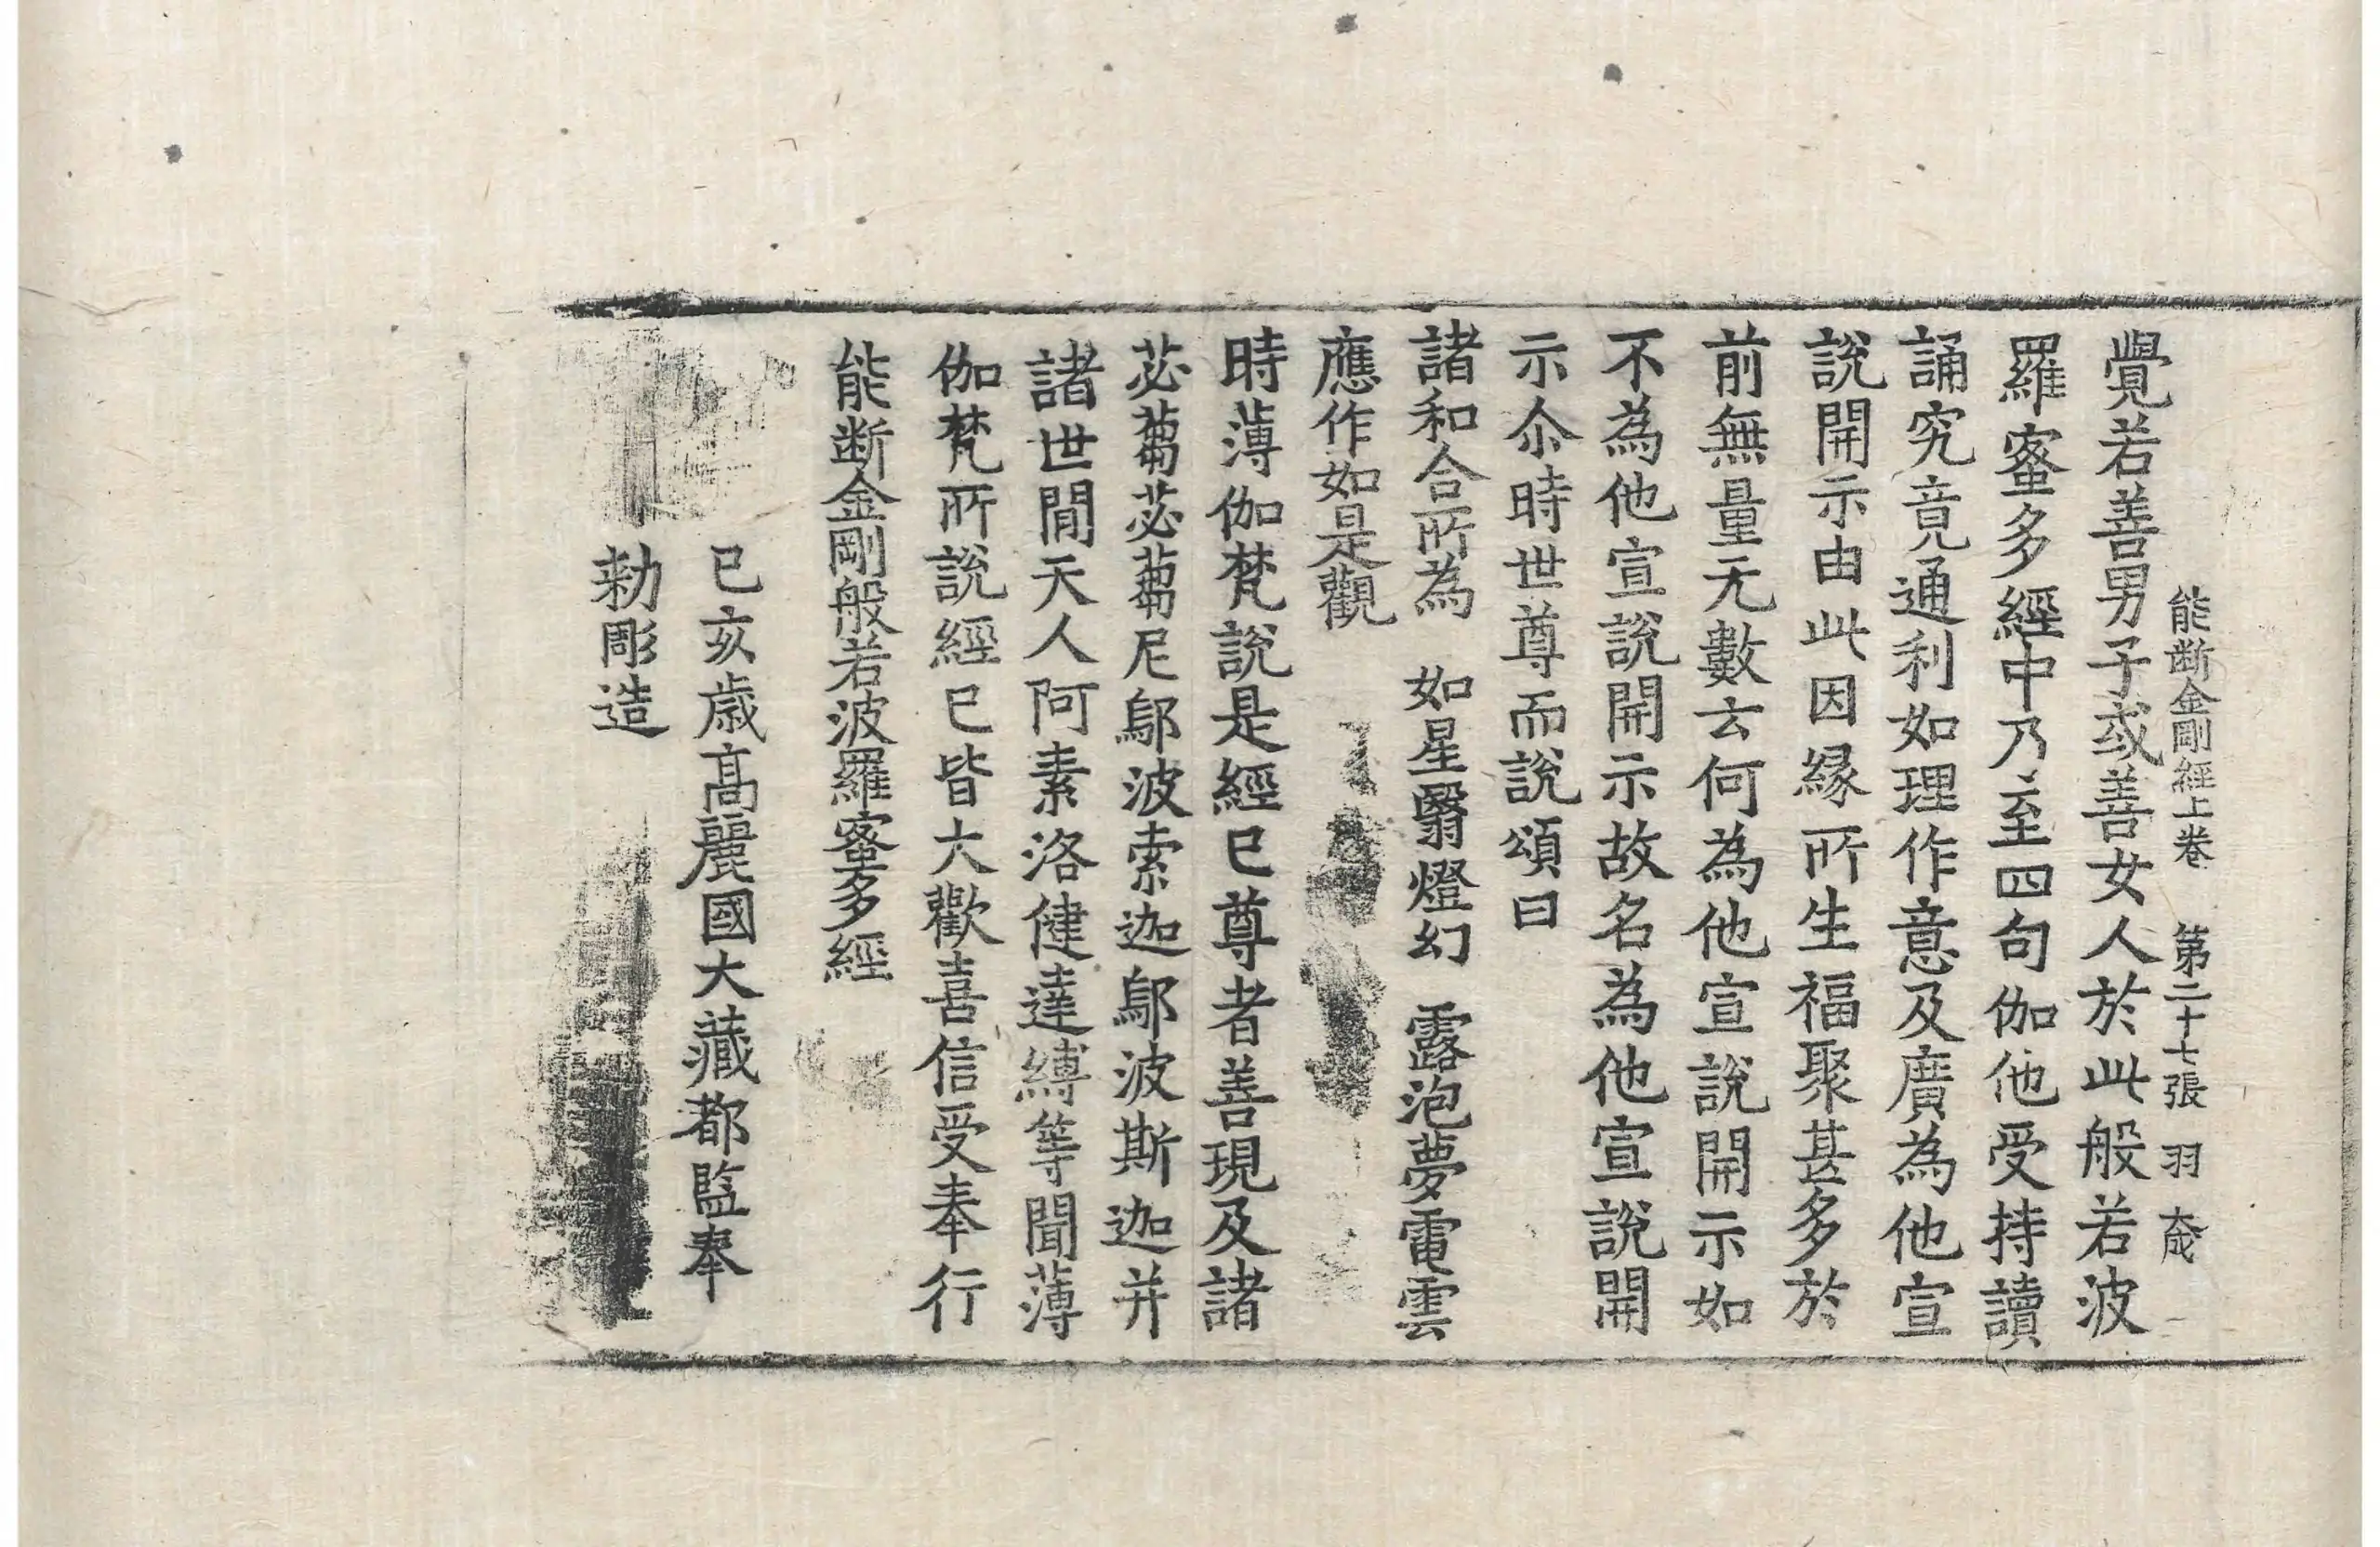 能斷金剛經上卷 第二十七張 羽
覺若善男子或善女人於此般若波
羅蜜多經中乃至四句伽他受持讀
誦究竟通利如理作意及廣為他宣
說開示由此因緣所生福聚甚多於
前無量无數云何為他宣說開示如
不為他宣說開示故名為他宣說開
示尒時世尊而說頌曰
諸和合所為 如星翳燈幻 露泡夢電雲
應作如是觀
時薄伽梵說是經已尊者善現及諸
苾蒭苾蒭尼鄔波索迦鄔波斯迦并
諸世閒天人阿素洛健達縛等聞薄
伽梵所說經已皆大歡喜信受奉行
能斷金剛般若波羅蜜多經
己亥歲高麗國大藏都監奉
勅彫造